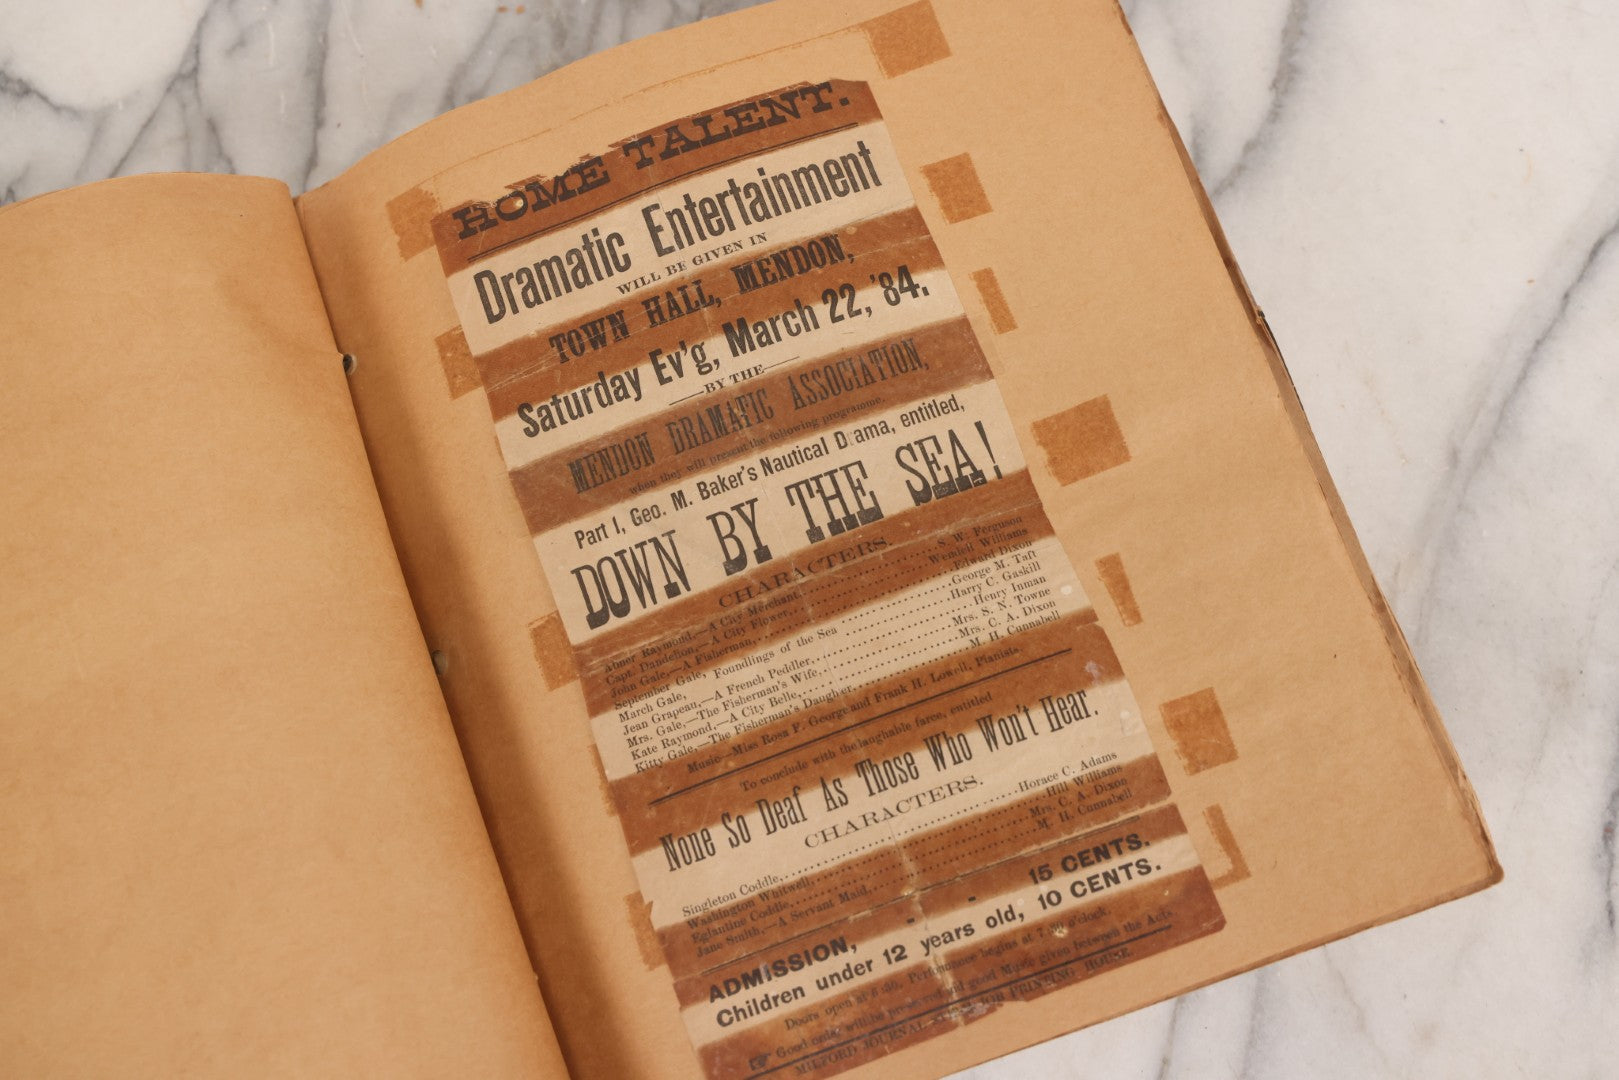 HOME TALENT.
Dramatic Entertainment
WILL BE GIVEN IN
TOWN HALL, MENDON,
Saturday Ev'g, March 22, '84.
—BY THE—
MENDON DRAMATIC ASSOCIATION,
when they will present the following programme.
Part I, Geo. M. Baker's Nautical Drama, entitled,
DOWN BY THE SEA!
CHARACTERS.
Abner Raymond,—A City Merchant, S. W. Ferguson
Capt. Dandelion,—A City Flower, Wendell Williams
John Gale,—A Fisherman, Edward Dixon
September Gale, Foundlings of the Sea George M. Taft
March Gale, Harry C. Gaskill
Jean Grapeau,—A French Peddler, Henry Inman
Mrs. Gale,—The Fisherman's Wife, Mrs. S. N. Towne
Kate Raymond,—A City Belle, Mrs. C. A. Dixon
Kitty Gale,—The Fisherman's Daughter, M. H. Cunnabell
Music—Miss Rosa F. George and Frank H. Lowell, Pianists.
To conclude with the laughable farce, entitled
None So Deaf As Those Who Won't Hear.
CHARACTERS.
Singleton Coddle, Horace C. Adams
Washington Whitwell, Hill Williams
Eglantine Coddle, Mrs. C. A. Dixon
Jane Smith,—A Servant Maid, M. H. Cunnabell
ADMISSION, - - 15 CENTS.
Children under 12 years old, 10 CENTS.
Doors open at 6:30. Performance begins at 7.30 o'clock.
Good order will be preserved and good Music given between the Acts
MILFORD JOURNAL JOB PRINTING HOUSE.